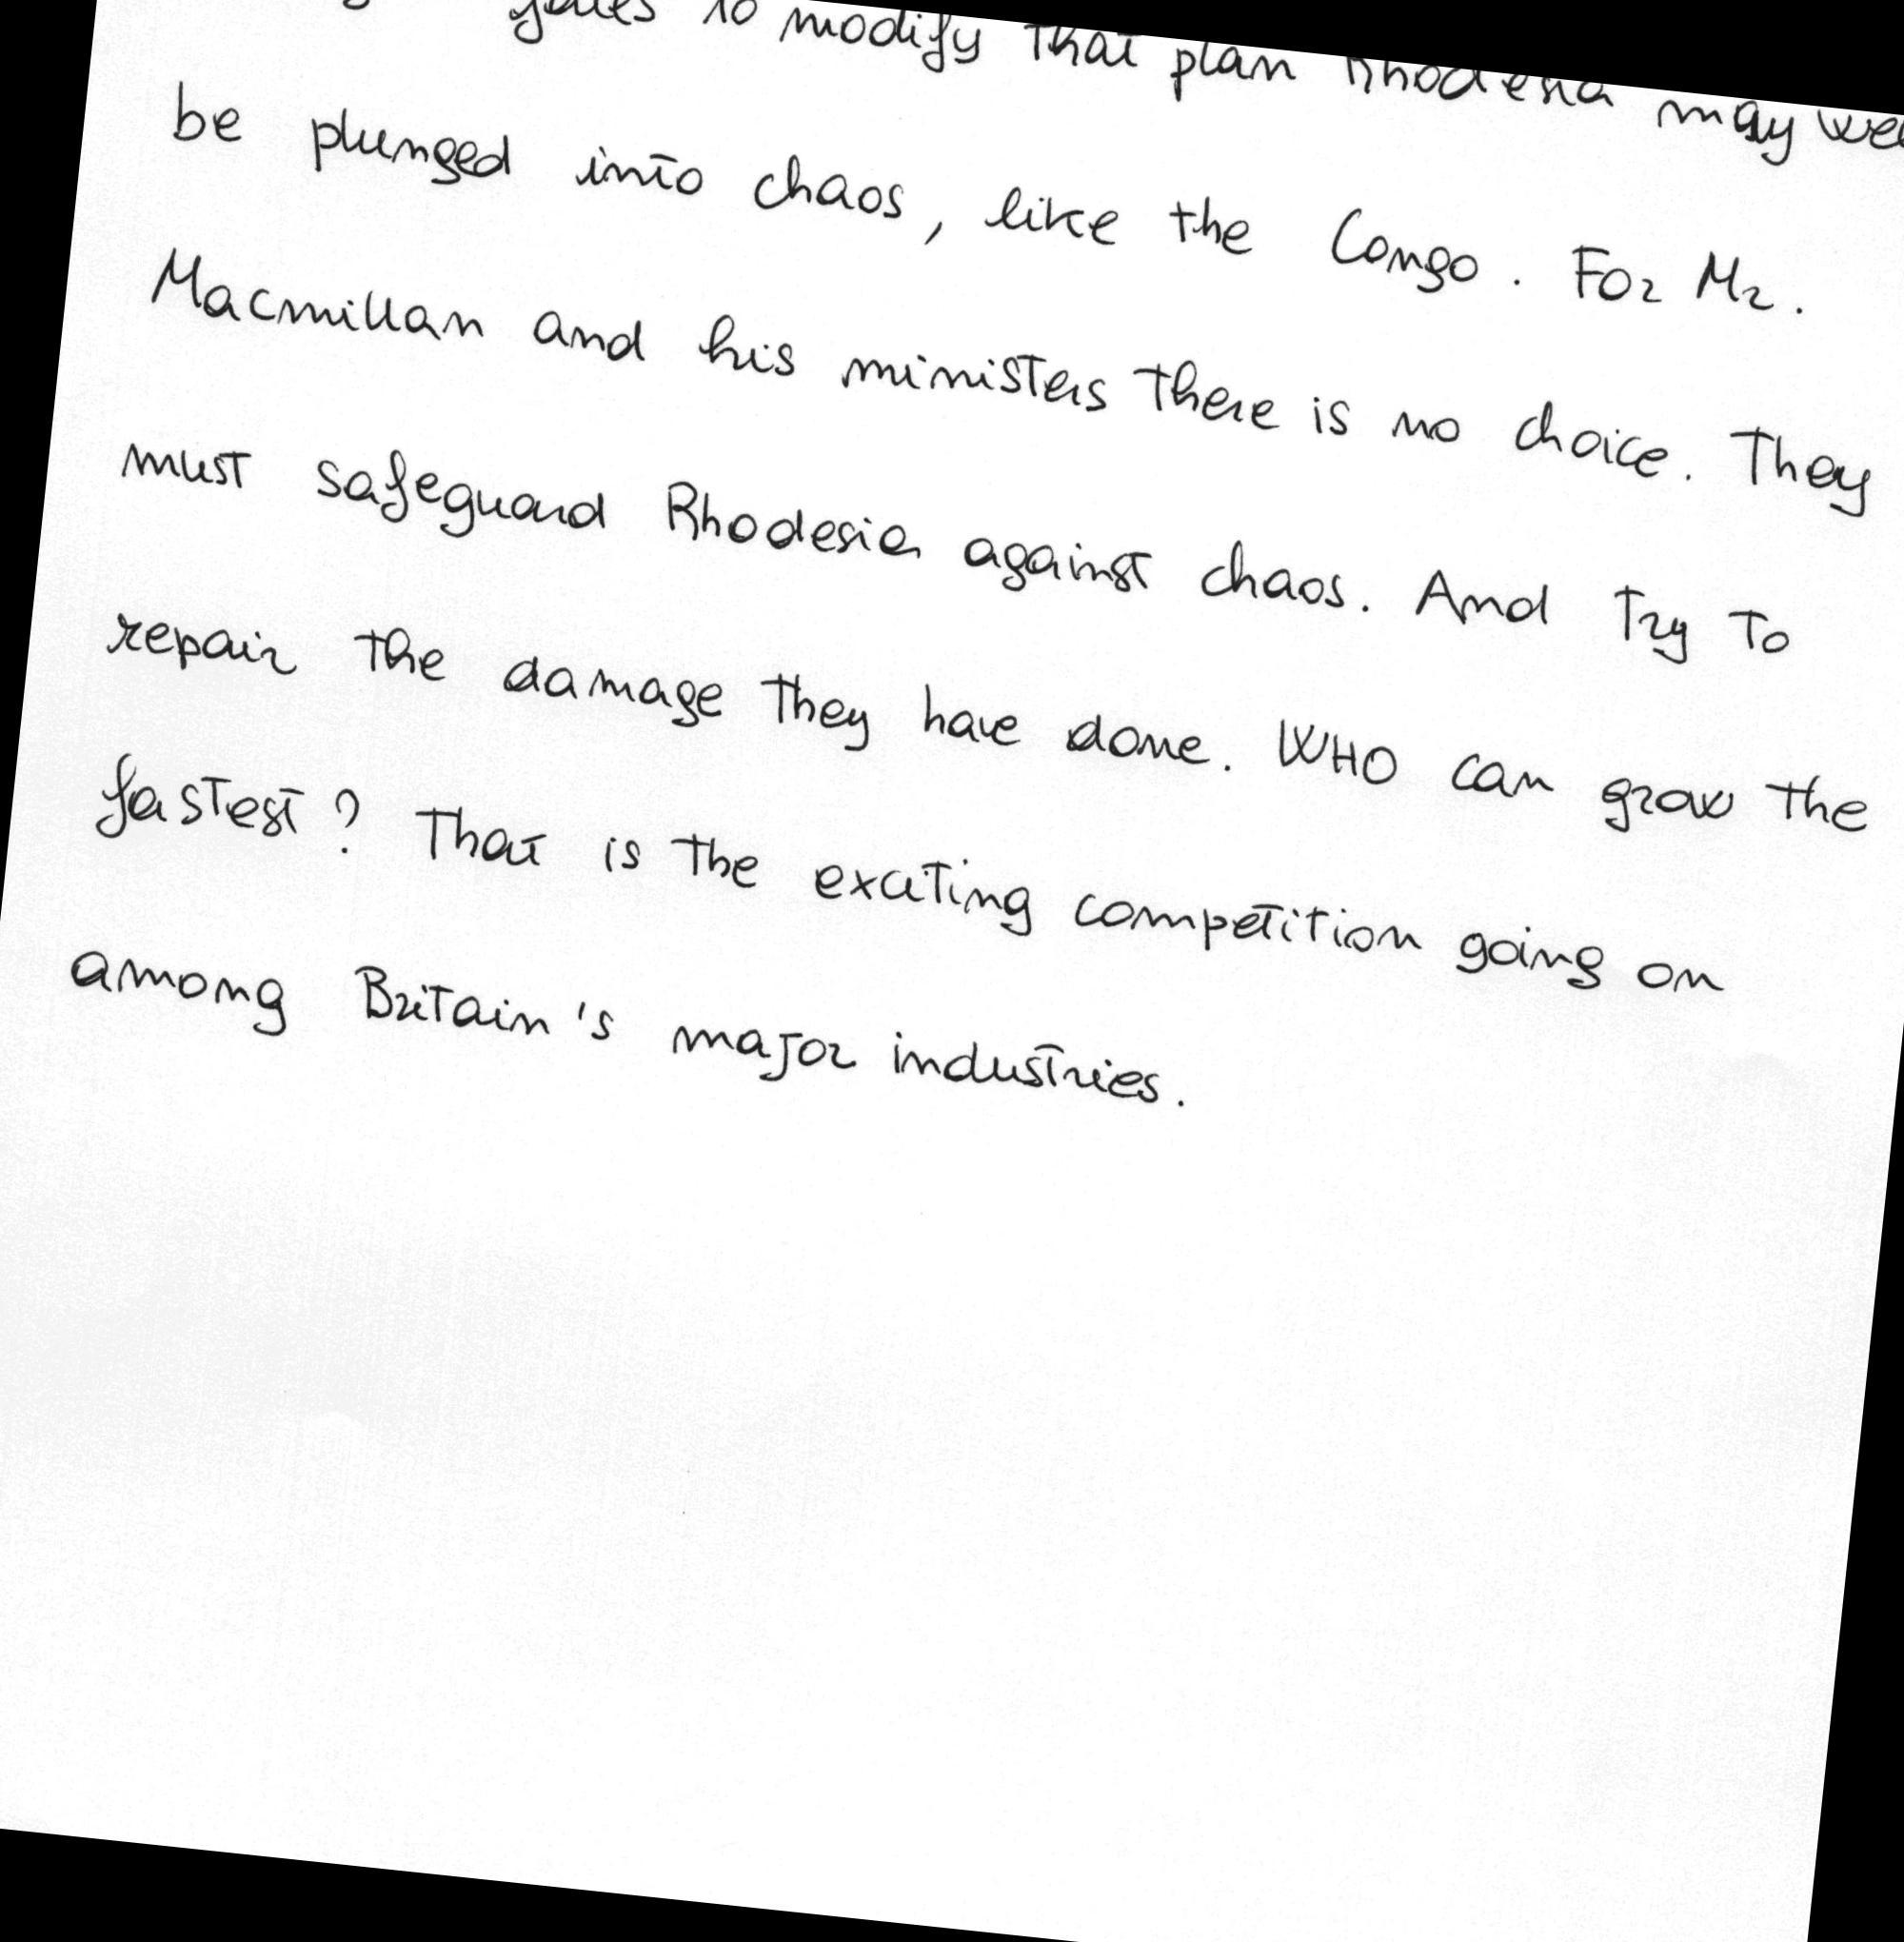 to modify that plan Rhodesia may
be plunged into chaos, like the Congo. For Mr.
Macmillan and his ministers there is no choice. They
must safeguard Rhodesia against chaos. And try to
repair the damage they have done. WHO can grow the
fastest? That is the exciting competition going on
among Britain's major industries.